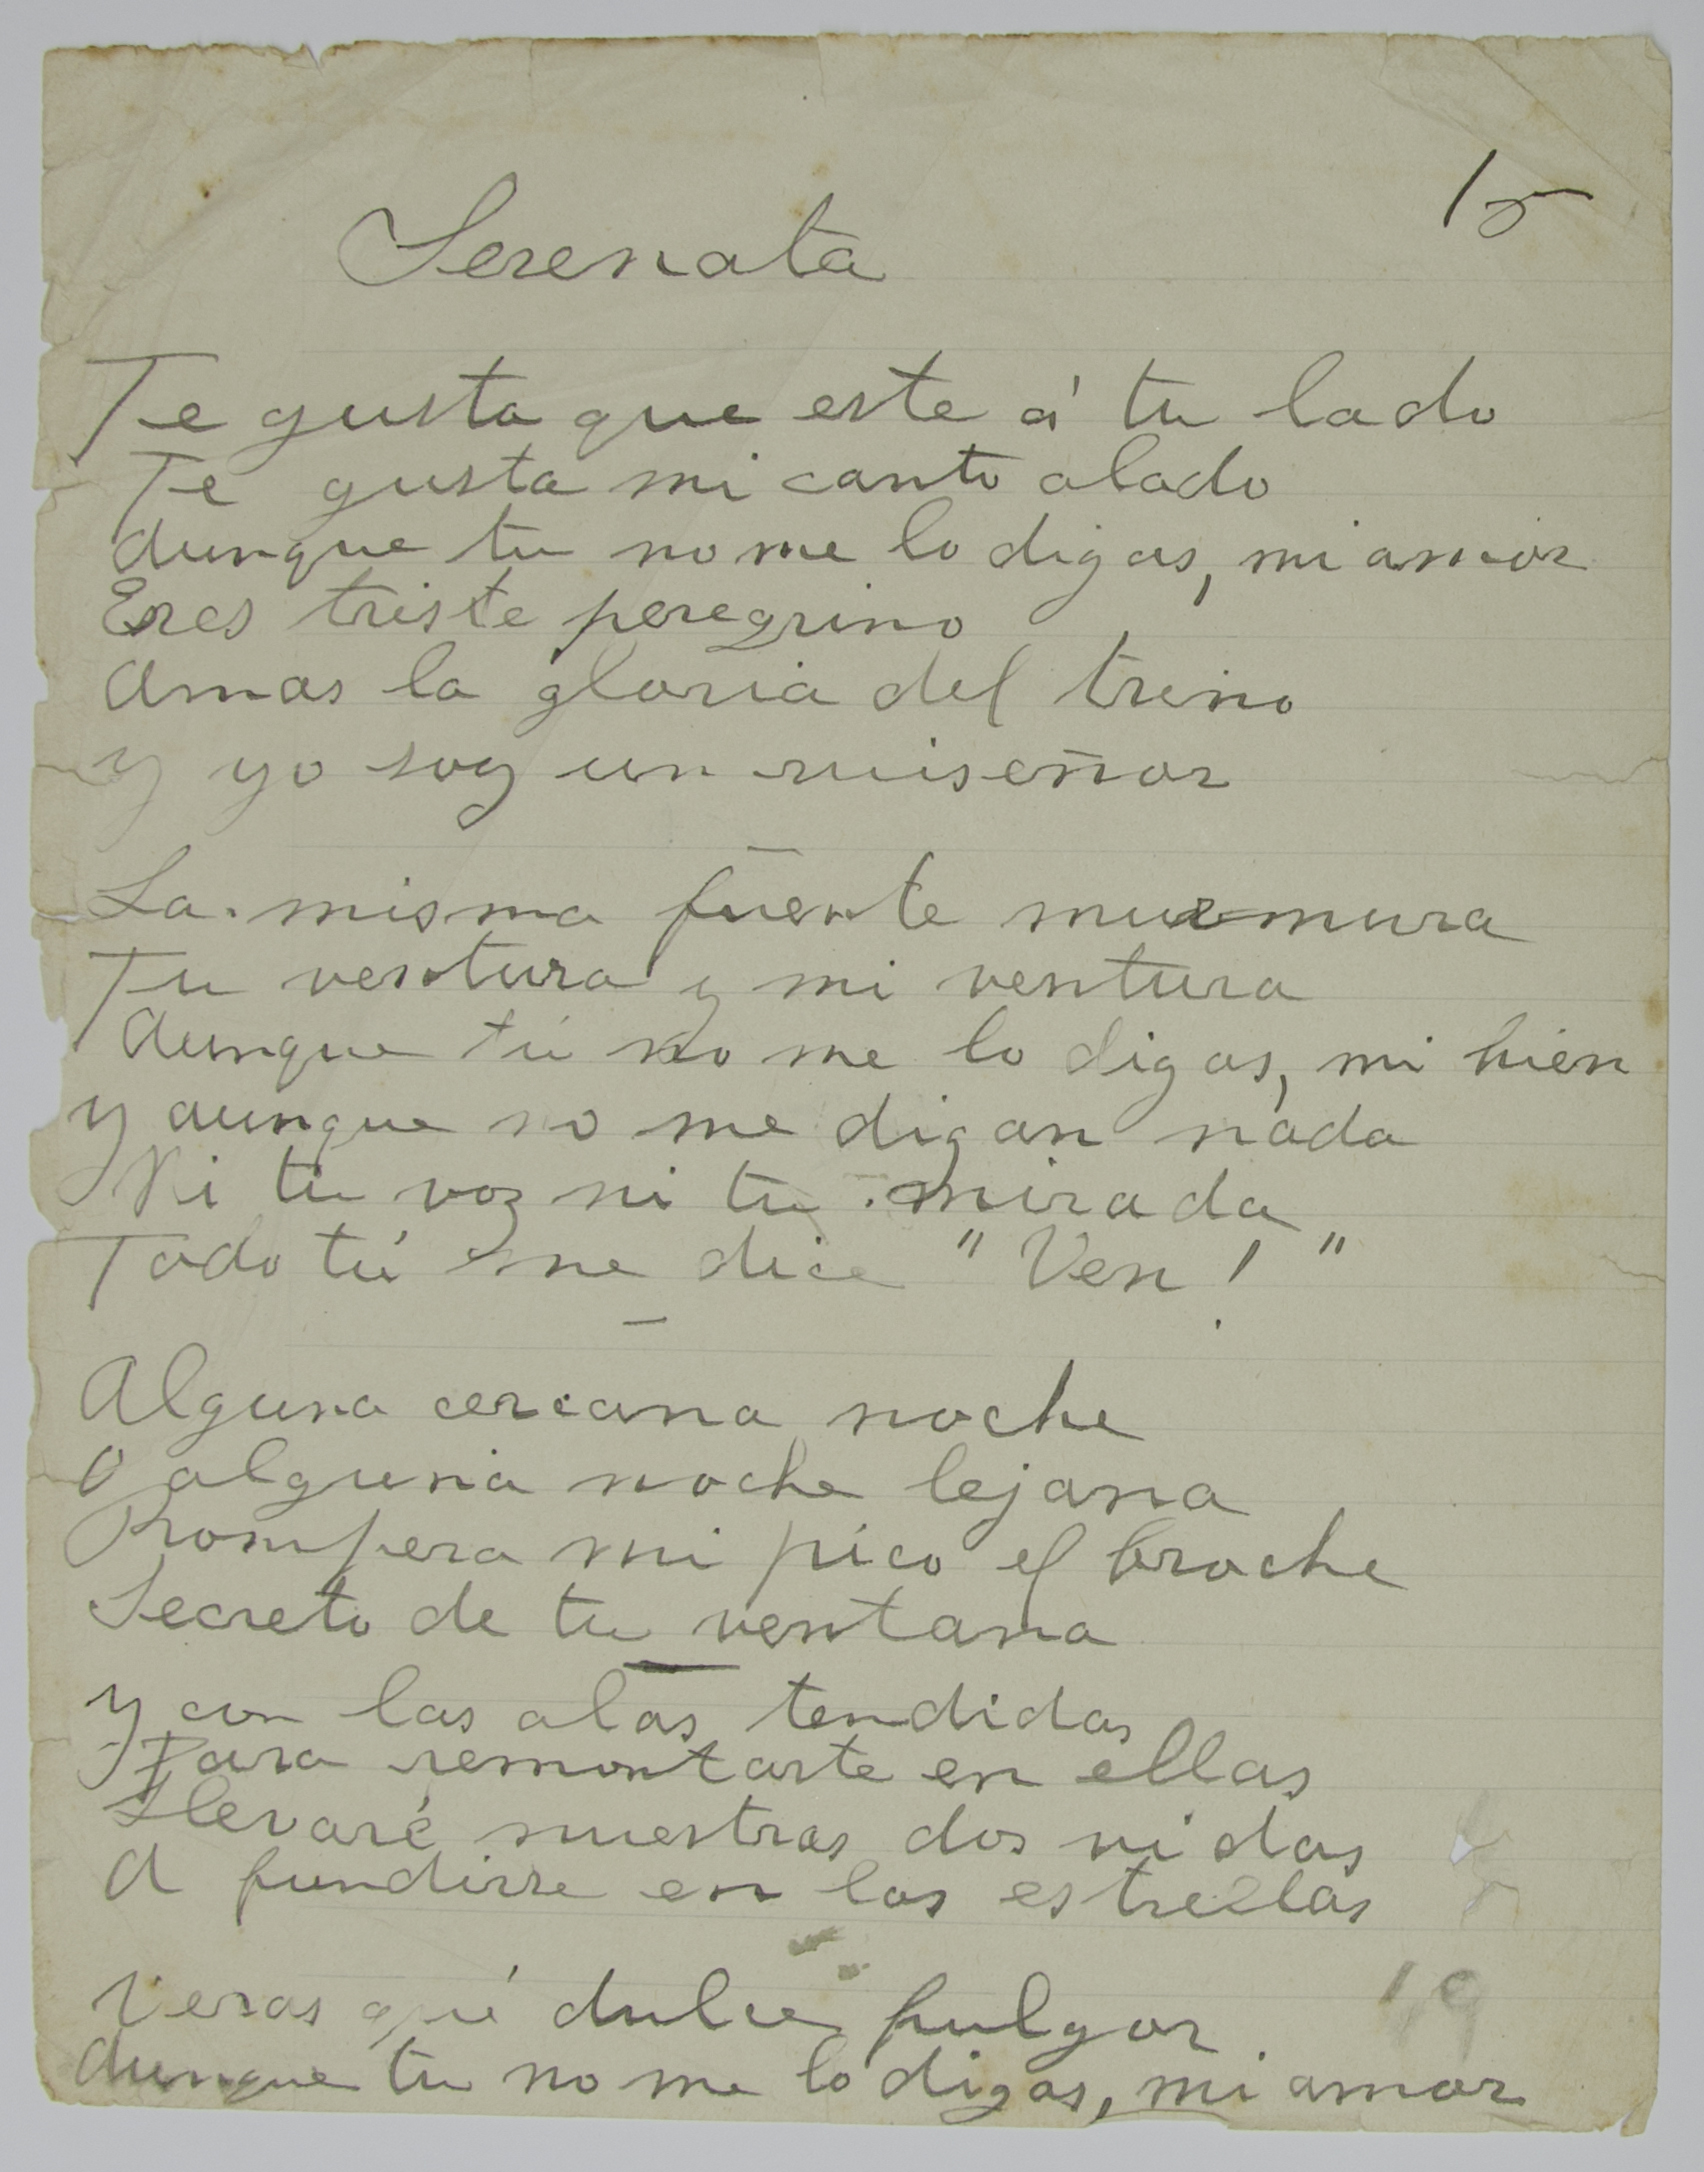 15
Serenata
Te gusta que este á tu lado
Te gusta mi canto alado
Aunque tu no me lo digas, mi amor
Eres triste peregrino
Amas la gloria del trino
y yo soy un ruiseñor
La misma fuente murmura
Tu ventura y mi ventura
Aunque tú no me lo digas, mi bien
y aunque no me digan nada
Ni tu voz ni tu mirada
Todo tú me dice "Ven!"
Alguna cercana noche
O alguna noche lejana
Rompera mi pico el broche
Secreto de tu ventana
y con las alas tendidas
Para remontarte en ellas
Llevaré nuestras dos vidas
A fundirse en las estrellas
Veras qué dulce fulgor
Aunque tu no me lo digas, mi amor
19